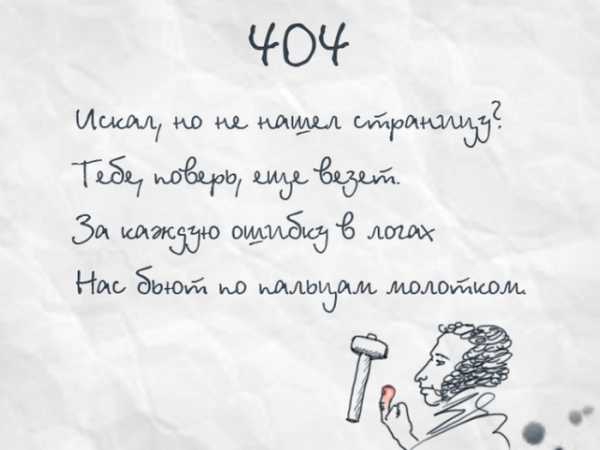 404
Искал, но не нашел страницу?
Тебе, поверь, еще везет.
За каждую ошибку в логах
Нас бьют по пальцам молотком.